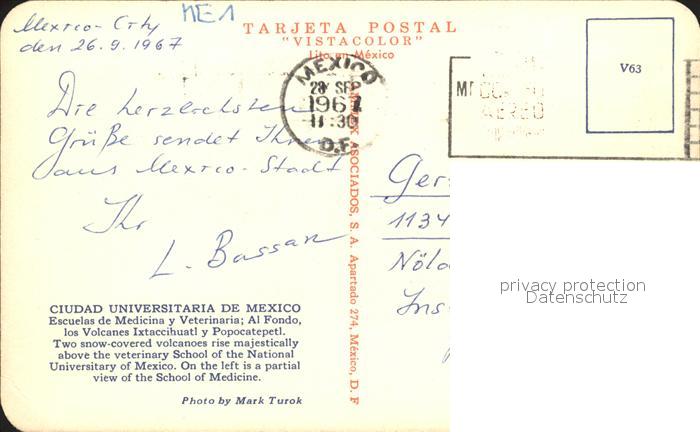 Mexico-City
den 26.9.1967
ME1
TARJETA POSTAL
"VISTACOLOR"
Lito en México
V63
MEXICO
23 SEP
1967
11:30
D.F.
AEREO
Die herzlichsten
Grüße sendet Ihnen
aus Mexico-Stadt
Ihr
L. Bassan
ASOCIADOS, S. A. Apartado 274, México, D. F
Ger
1134
Nöld
Ins
privacy protection
Datenschutz
CIUDAD UNIVERSITARIA DE MEXICO
Escuelas de Medicina y Veterinaria; Al Fondo,
los Volcanes Ixtaccihuatl y Popocatepetl.
Two snow-covered volcanoes rise majestically
above the veterinary School of the National
Universitary of Mexico. On the left is a partial
view of the School of Medicine.
Photo by Mark Turok